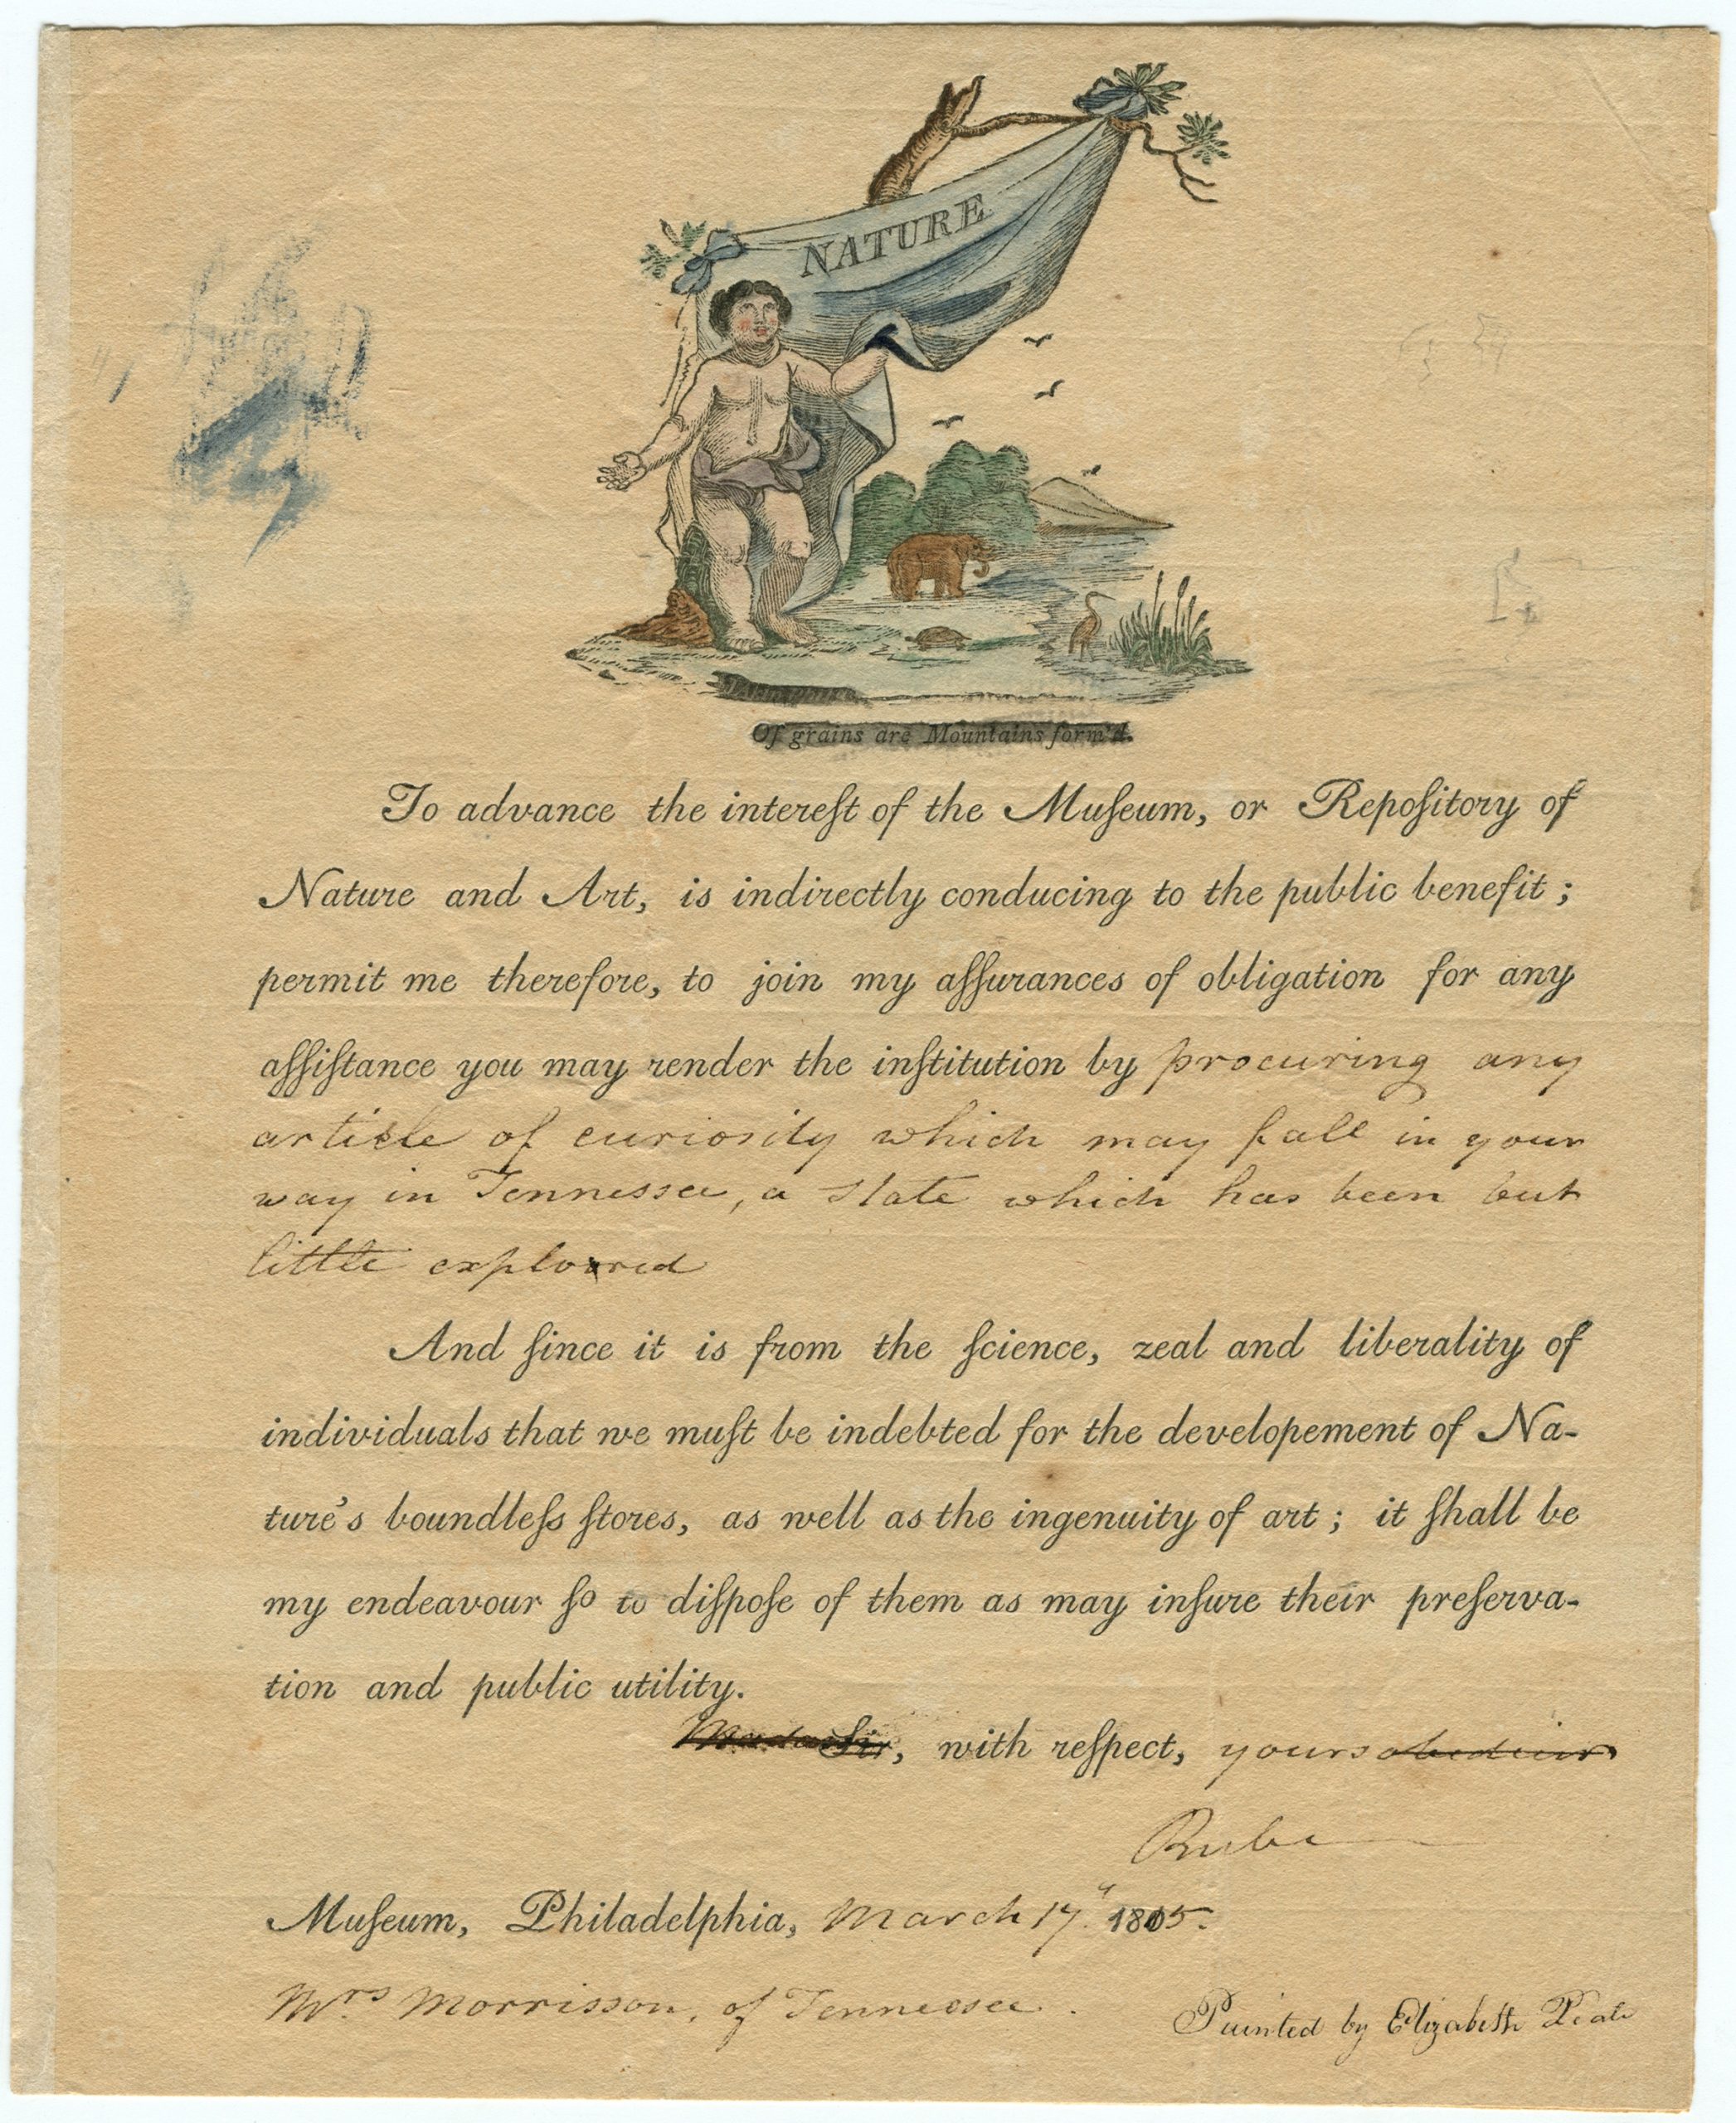 NATURE
Of grains are Mountains form'd.
To advance the intereſt of the Muſeum, or Repoſitory of
Nature and Art, is indirectly conducing to the public benefit;
permit me therefore, to join my aſſurances of obligation for any
aſſiſtance you may render the inſtitution by procuring any
article of curiosity which may fall in your
way in Tennessee, a State which has been but
little explored
And ſince it is from the ſcience, zeal and liberality of
individuals that we muſt be indebted for the developement of Na-
ture's boundleſs ſtores, as well as the ingenuity of art; it ſhall be
my endeavour ſo to diſpoſe of them as may inſure their preſerva-
tion and public utility.
Sir, with reſpect, yours
Muſeum, Philadelphia, March 17. 1805.
Mrs Morrisson, of Tennessee.
Painted by Elizabeth Peale